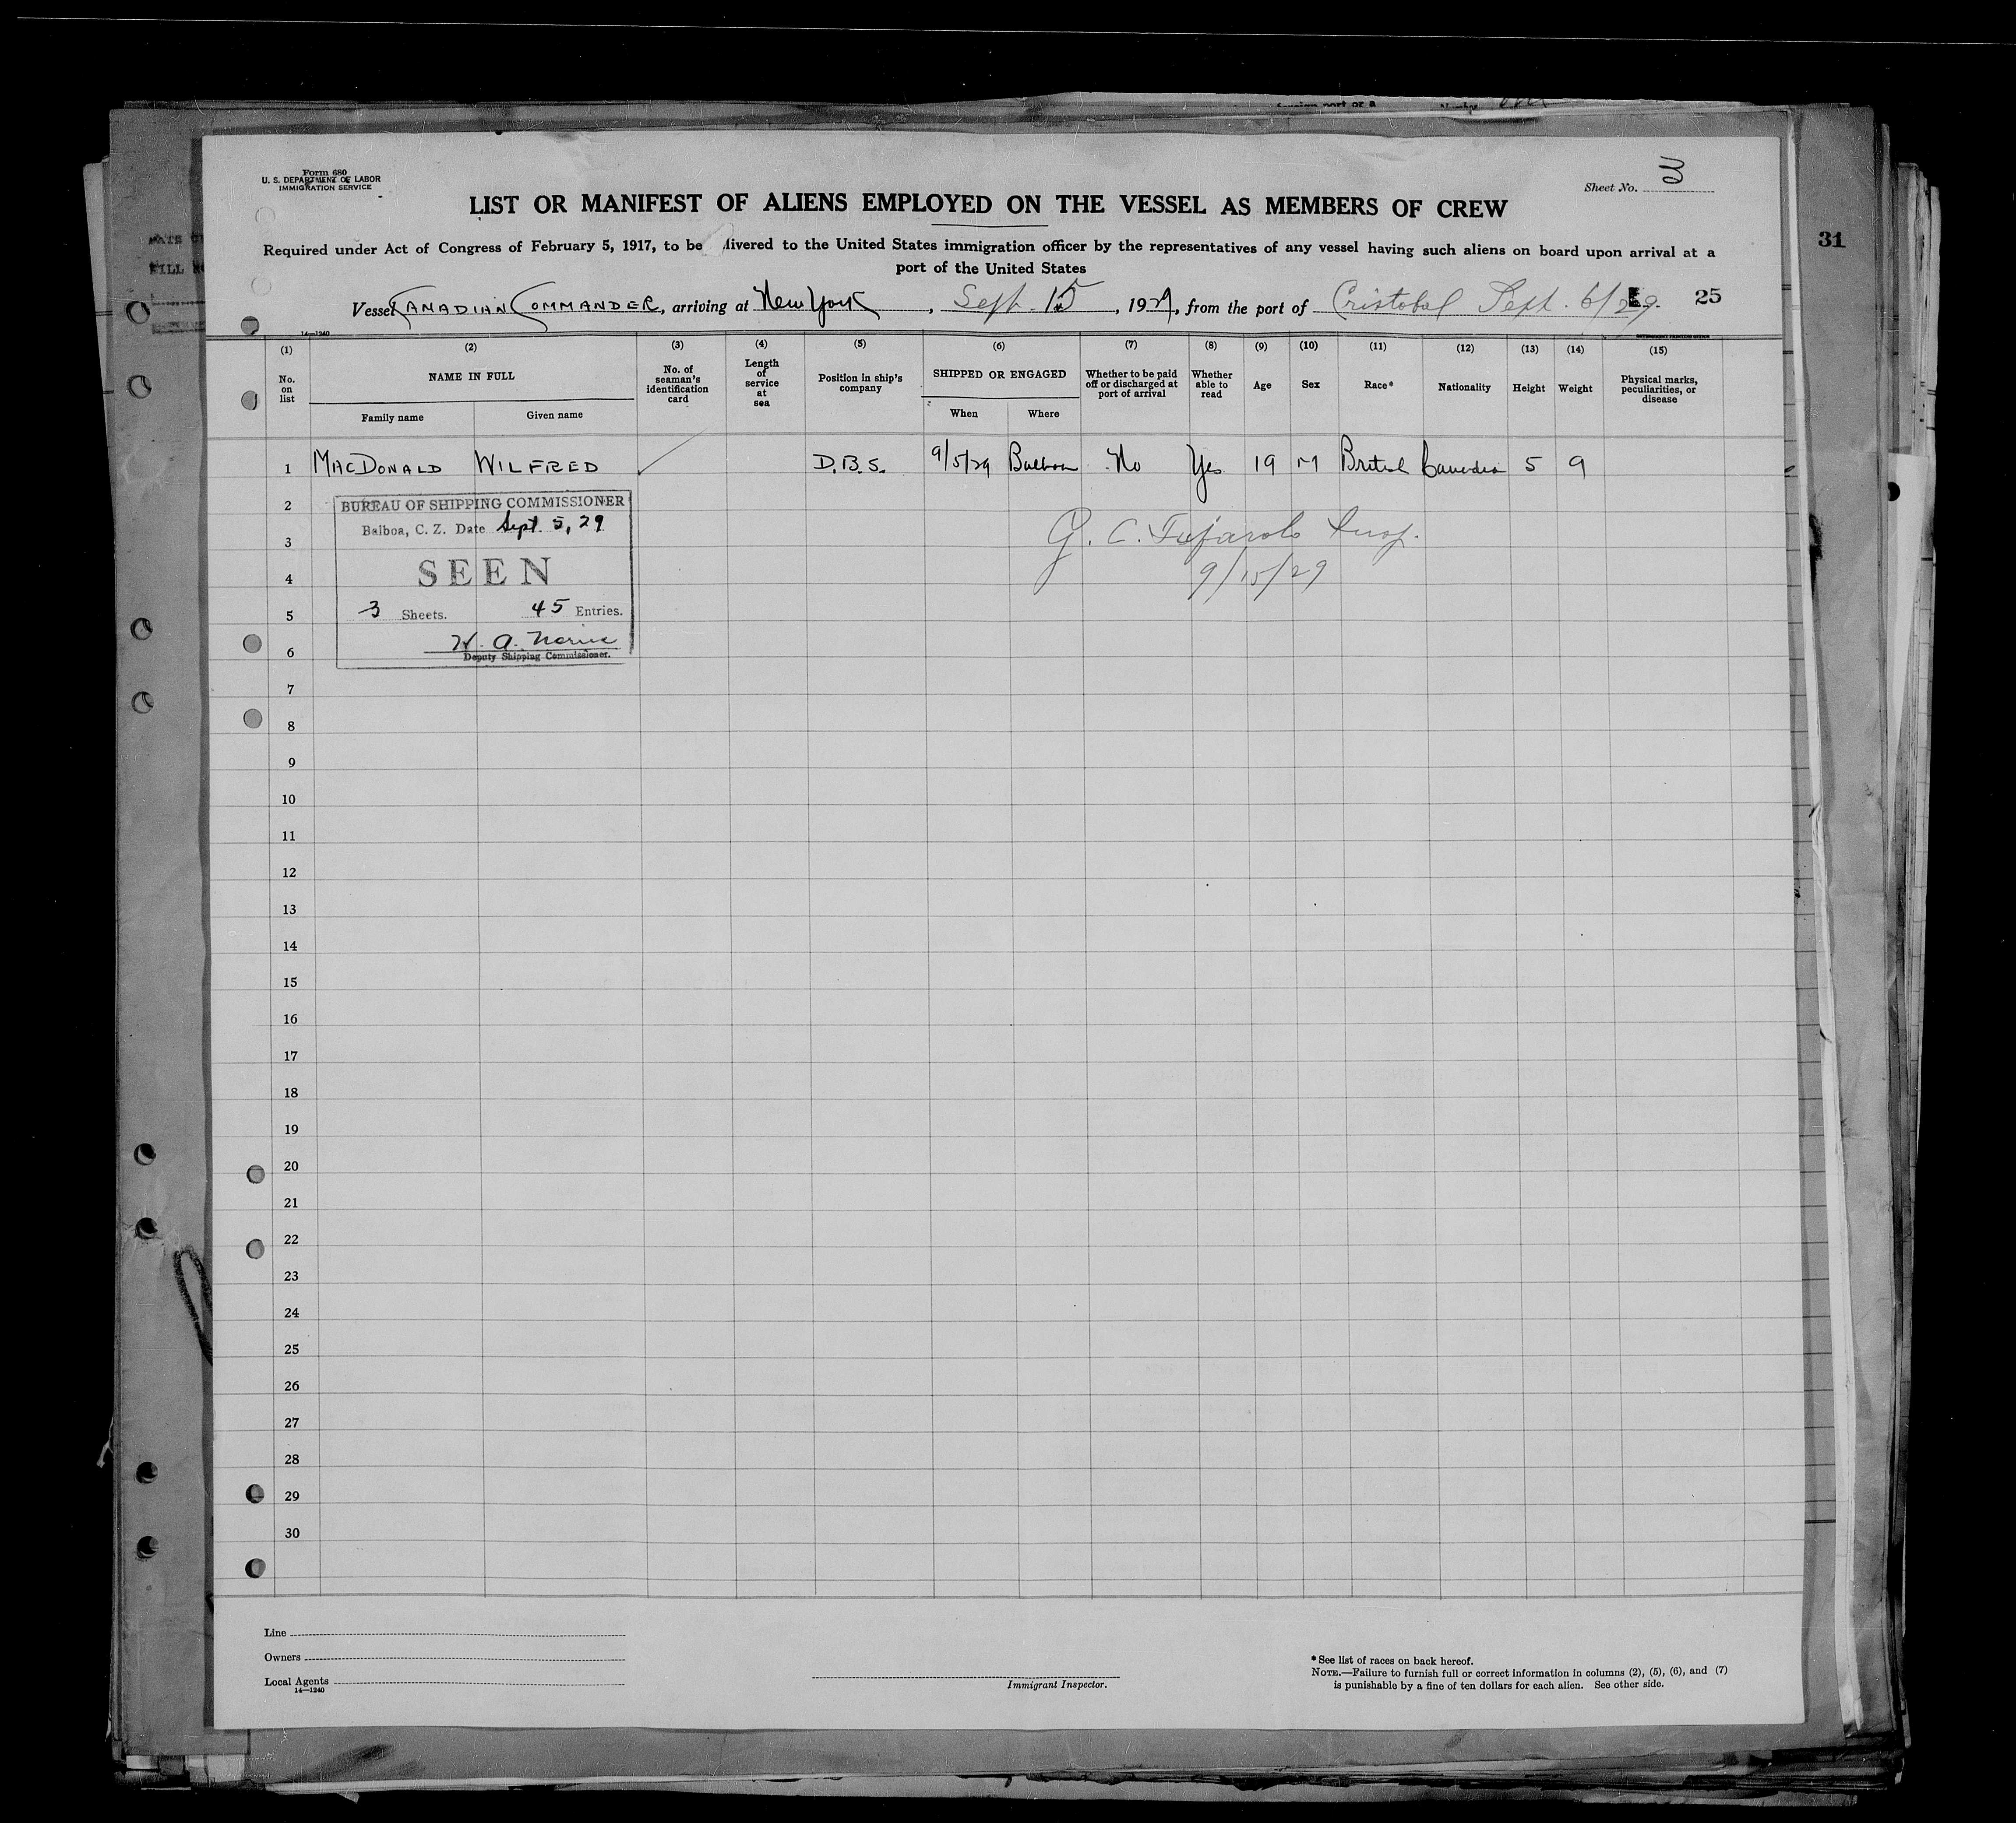 Form 680
U. S. DEPARTMENT OF LABOR
IMMIGRATION SERVICE
Sheet No. 3
LIST OR MANIFEST OF ALIENS EMPLOYED ON THE VESSEL AS MEMBERS OF CREW
Required under Act of Congress of February 5, 1917, to be livered to the United States immigration officer by the representatives of any vessel having such aliens on board upon arrival at a
port of the United States
31
Vessel CANADIAN COMMANDER, arriving at New York, Sept. 15, 1929, from the port of Cristobal Sept. 6/29. 25
14—1240
(1) (2) (3) (4) (5) (6) (7) (8) (9) (10) (11) (12) (13) (14) (15)
No. on list
NAME IN FULL
Family name Given name
No. of seaman's identification card
Length of service at sea
Position in ship's company
SHIPPED OR ENGAGED
When Where
Whether to be paid off or discharged at port of arrival
Whether able to read
Age Sex Race* Nationality Height Weight
Physical marks, peculiarities, or disease
1 MACDONALD WILFRED D.B.S. 9/5/29 Balboa No Yes 19 M British Canadian 5 9
2
BUREAU OF SHIPPING COMMISSIONER
Balboa, C. Z. Date Sept. 5, 29
3
G. C. Insp.
SEEN
4
9/15/29
5
3 Sheets. 45 Entries.
W. A.
6
Deputy Shipping Commissioner.
7
8
9
10
11
12
13
14
15
16
17
18
19
20
21
22
23
24
25
26
27
28
29
30
Line
Owners
Local Agents
14—1240
Immigrant Inspector.
*See list of races on back hereof.
NOTE.—Failure to furnish full or correct information in columns (2), (5), (6), and (7)
is punishable by a fine of ten dollars for each alien. See other side.